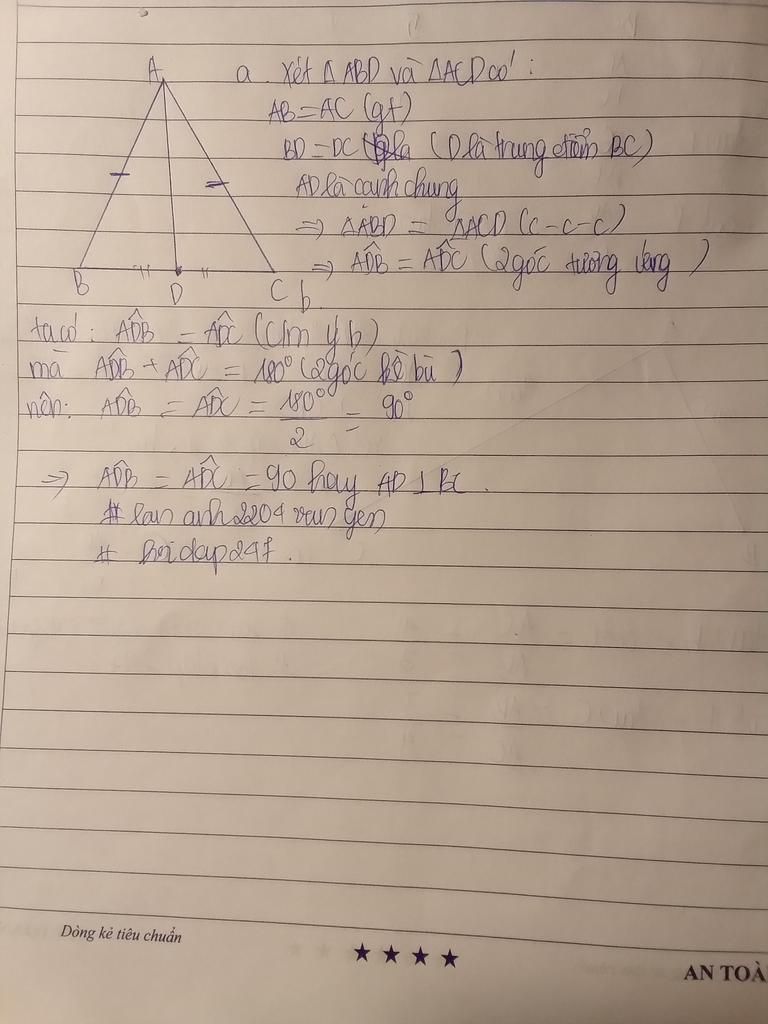 A
a. Xét Δ ABD và ΔACD có :
AB = AC (gt)
BD = DC (D là trung điểm BC)
AD là cạnh chung
⇒ ΔABD = ΔACD (c-c-c)
⇒ ADB̂ = ADĈ (2 góc tương ứng)
B D C b.
ta có : ADB̂ = ADĈ (Cm ý b)
mà ADB̂ + ADĈ = 180° (2 góc kề bù)
nên: ADB̂ = ADĈ = 180°/2 = 90°
⇒ ADB̂ = ADĈ = 90 hay AD ⊥ BC.
# lan anh2204
# hoidap247.
Dòng kẻ tiêu chuẩn
★ ★ ★ ★
AN TOÀ